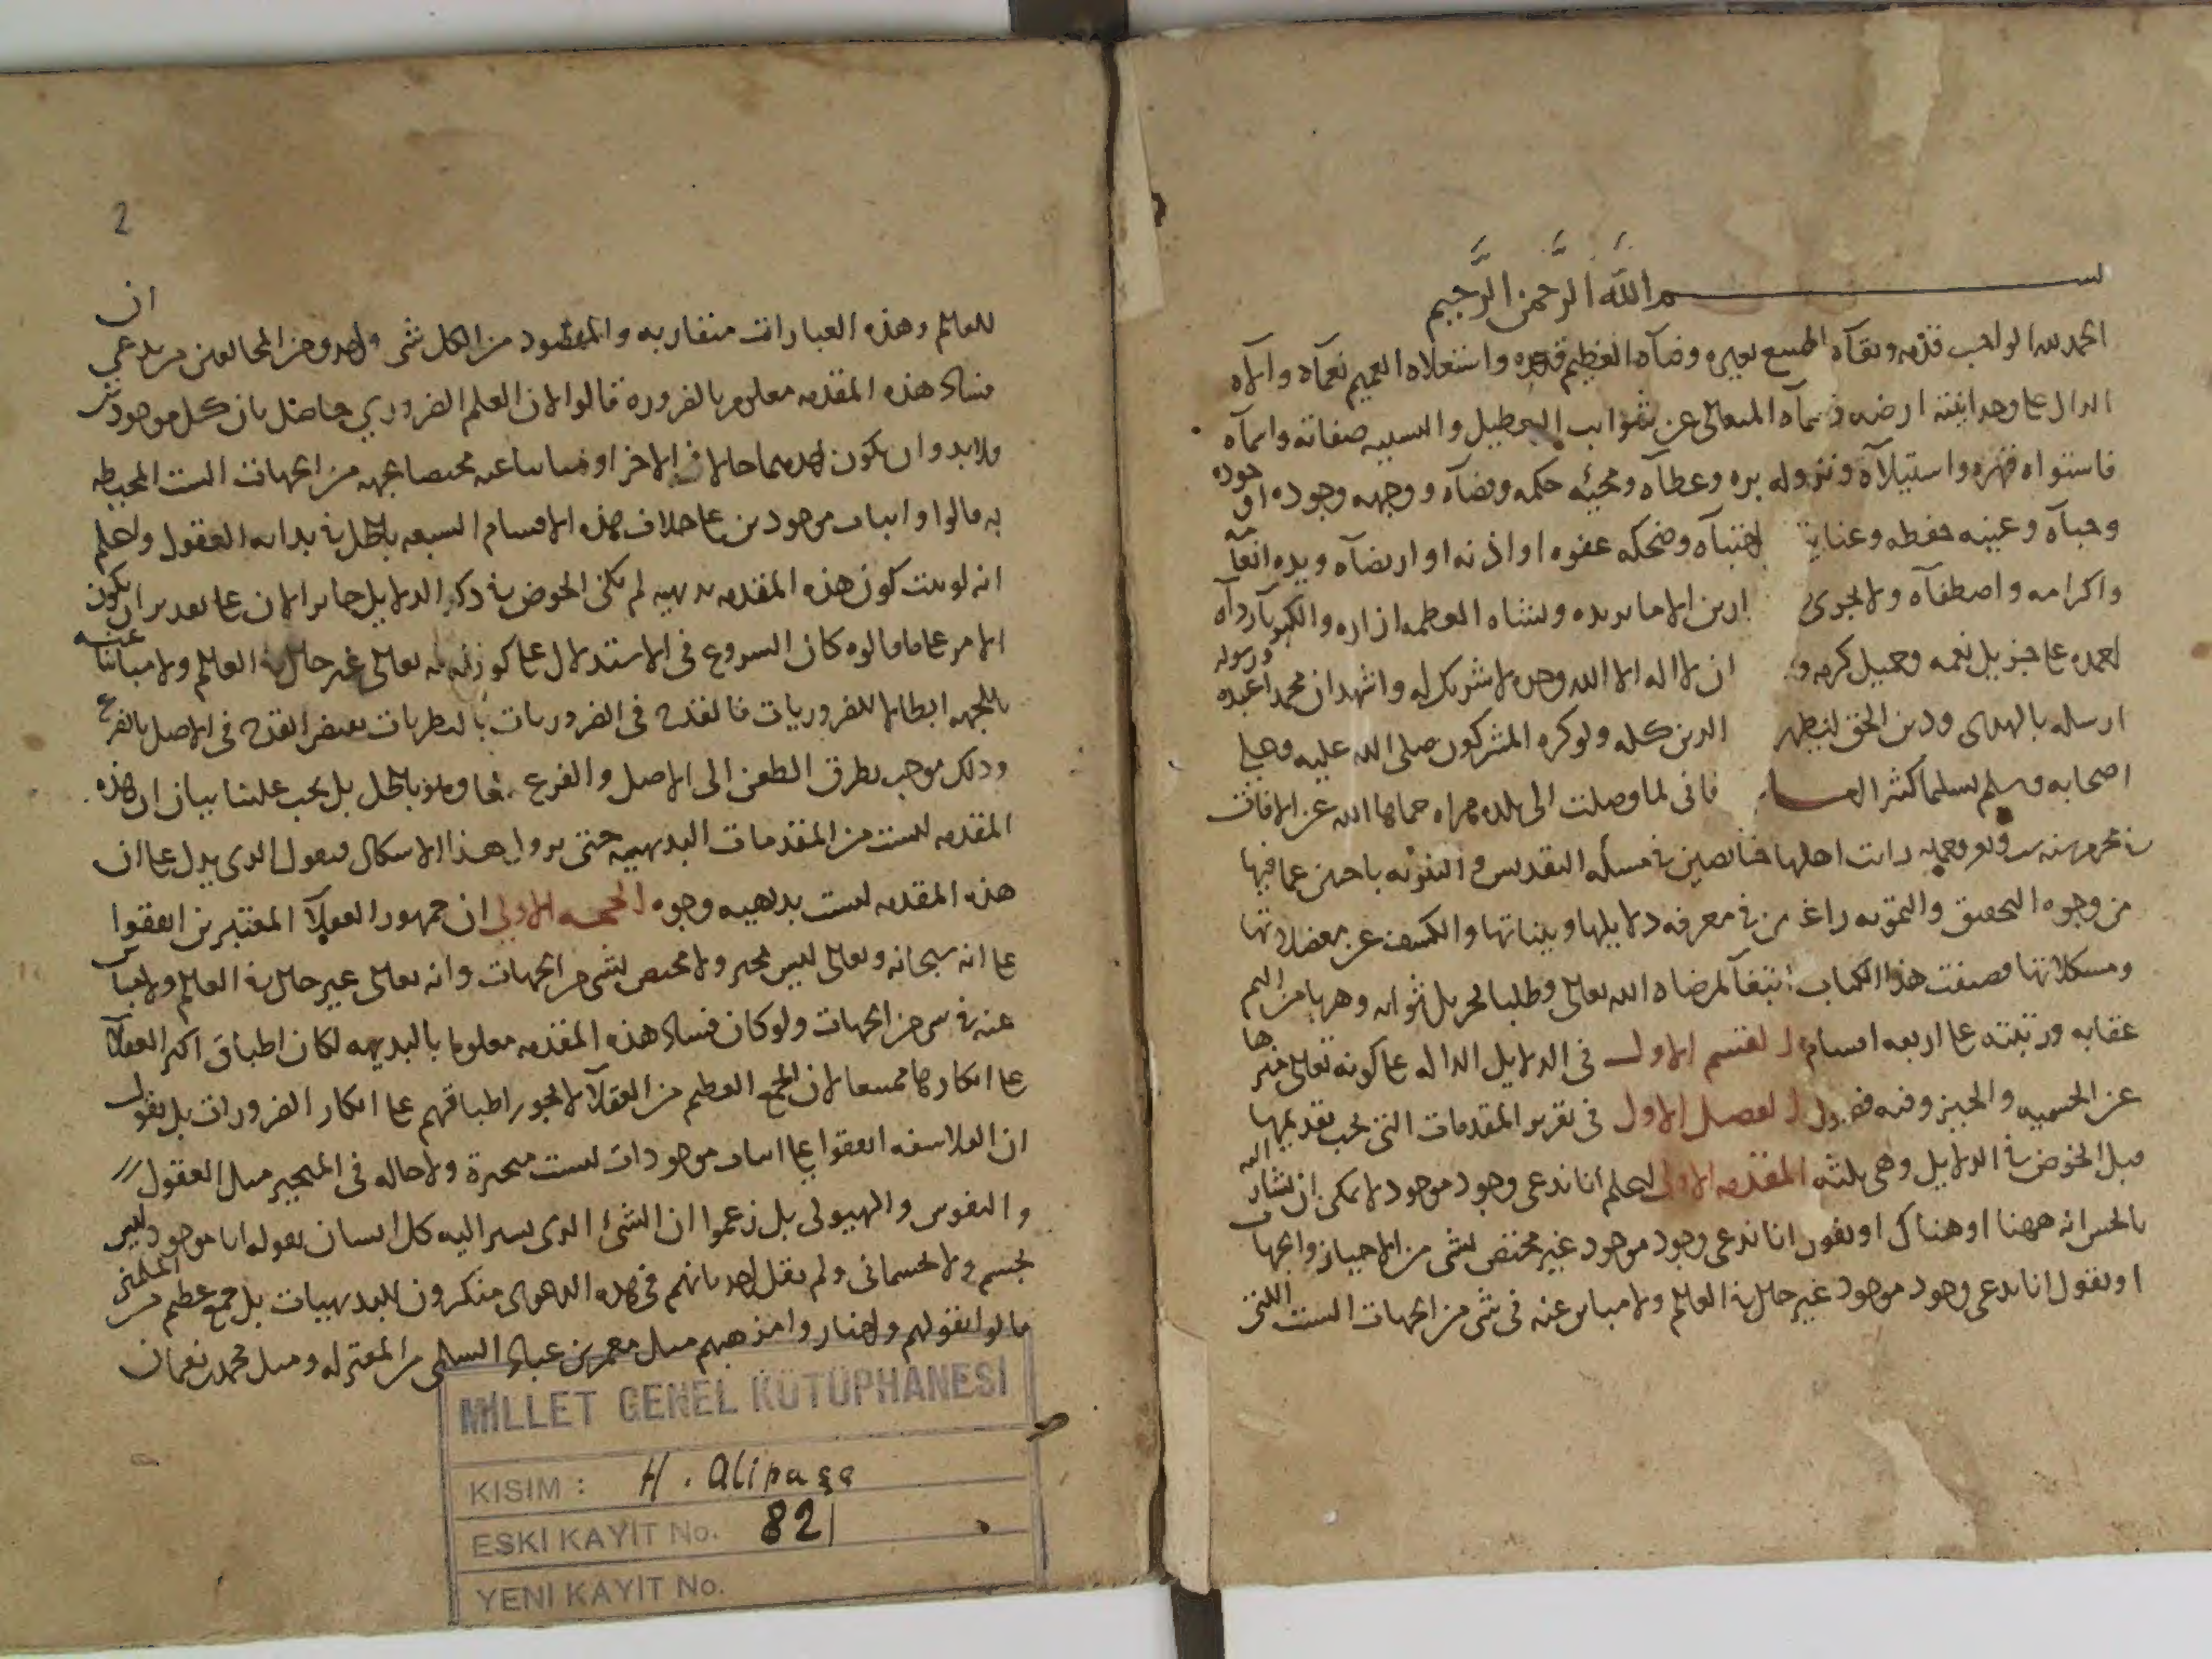 بسم الله الرحمن الرحيم
الحمد لله الواجب قدمه وبقآه الممتنع تغيره وفنآه العظيم قدره واستعلاه العميم نعمآه وآلآه
الدال على وحدانيته ارضه وسمآه المتعالى عن شوائب التعطيل والتشبيه صفاته واسمآه
فاستواه قهره واستيلآه ونزوله بره وعطآه ومجيئه حكمه وقضآه ووجهه وجوده او جوده
وحبآه وعينه حفظه وعنايته اجتبآه وضحكه عفوه او اذنه او ارتضآه ويده انعامه
واكرامه واصطفآه ولا يجري ارين الا ما يريده ويشاه العظمه ازاره والكبريآ ردآه
احمده على جزيل نعمه وجميل كرمه و ان لا اله الا الله وحده لا شريك له واشهد ان محمدا عبده ورسوله
ارسله بالهدى ودين الحق ليظهر الدين كله ولو كره المشركون صلى الله عليه وعلى
اصحابه وسلم تسليما كثيرا فانى لما وصلت الى بلده هراه حماها الله عن الافات
رايت اهلها خائضين في مسئله التقديس والتنزيه باحثين عما فيها
من وجوه التحقيق والتمويه راغبين في معرفه دلايلها وبيناتها والكشف عن معضلاتها
ومشكلاتها فصنفت هذا الكتاب ابتغآ لمرضاه الله تعالى وطلبا لجزيل ثوابه وهربا من اليم
عقابه ورتبته على اربعه اقسام القسم الاول في الدلايل الداله على كونه تعالى منزها
عن الجسميه والحيز وفيه فصول الفصل الاول في تقرير المقدمات التى يجب تقديمها
قبل الخوض في الدلايل وهى ثلثه المقدمه الاولى اعلم انا ندعى وجود موجود لا يمكن ان يشار اليه
بالحس انه ههنا او هناك او نقول انا ندعى وجود موجود غير مختص بشى من الاحياز والجهات
او نقول انا ندعى وجود موجود غير حال في العالم ولا مباين عنه في شى من الجهات الست التى
2
للعالم وهذه العبارات متقاربه والمقصود من الكل شى واحد ومن المخالفين من يدعى ان
فساد هذه المقدمه معلوم بالضروره قالوا لان العلم الضروري حاصل بان كل موجودين
فلا بد وان يكون احدهما حالا في الاخر او مباينا عنه مختصا بجهه من الجهات الست المحيطه
به قالوا واثبات موجودين على خلاف هذه الاقسام السبعه باطل في بدايه العقول واعلم
انه لو ثبت كون هذه المقدمه بديهيه لم يكن الخوض في ذكر الدلايل جايزا لان على تقدير ان يكون
الامر على ما قالوه كان الشروع في الاستدلال على كون الله تعالى غير حال في العالم ولا مباينا عنه
بالجهه ابطالا للضروريات فالقدح في الضروريات بالنظريات يقتضى القدح في الاصل بالفرع
وذلك موجب تطرق الطعن الى الاصل والفرع معا وهو باطل بل يجب علينا بيان ان هذه
المقدمه ليست من المقدمات البديهيه حتى يزول هذا الاشكال فنقول الذى يدل على ان
هذه المقدمه ليست بديهيه وجوه الحجه الاولى ان جمهور العقلآ المعتبرين اتفقوا
على انه سبحانه وتعالى ليس بمتحيز ولا مختص بشى من الجهات وانه تعالى غير حال في العالم ولا مباين
عنه في شى من الجهات ولو كان فساد هذه المقدمه معلوما بالبديهه لكان اطباق اكثر العقلآ
على انكارها ممتنعا لان الجمع العظيم من العقلآ لا يجوز اطباقهم على انكار الضروريات بل نقول
ان الفلاسفه اتفقوا على اثبات موجودات ليست متحيزة ولا حاله في المتحيز مثل العقول
والنفوس والهيولى بل زعموا ان الشئ الذى يشير اليه كل انسان بقوله انا موجود ليس
بجسم ولا جسمانى ولم يقل احد بانهم في هذه الدعوى منكرون للبديهيات بل جمع عظيم من المسلمين
قالوا بقولهم واختاروا مذهبهم مثل معمر بن عباد السلمى من المعتزله ومثل محمد بن نعمان
MİLLET GENEL KÜTÜPHANESİ
KISIM : H. Alipaşa
ESKİ KAYIT No. 821
YENİ KAYIT No.